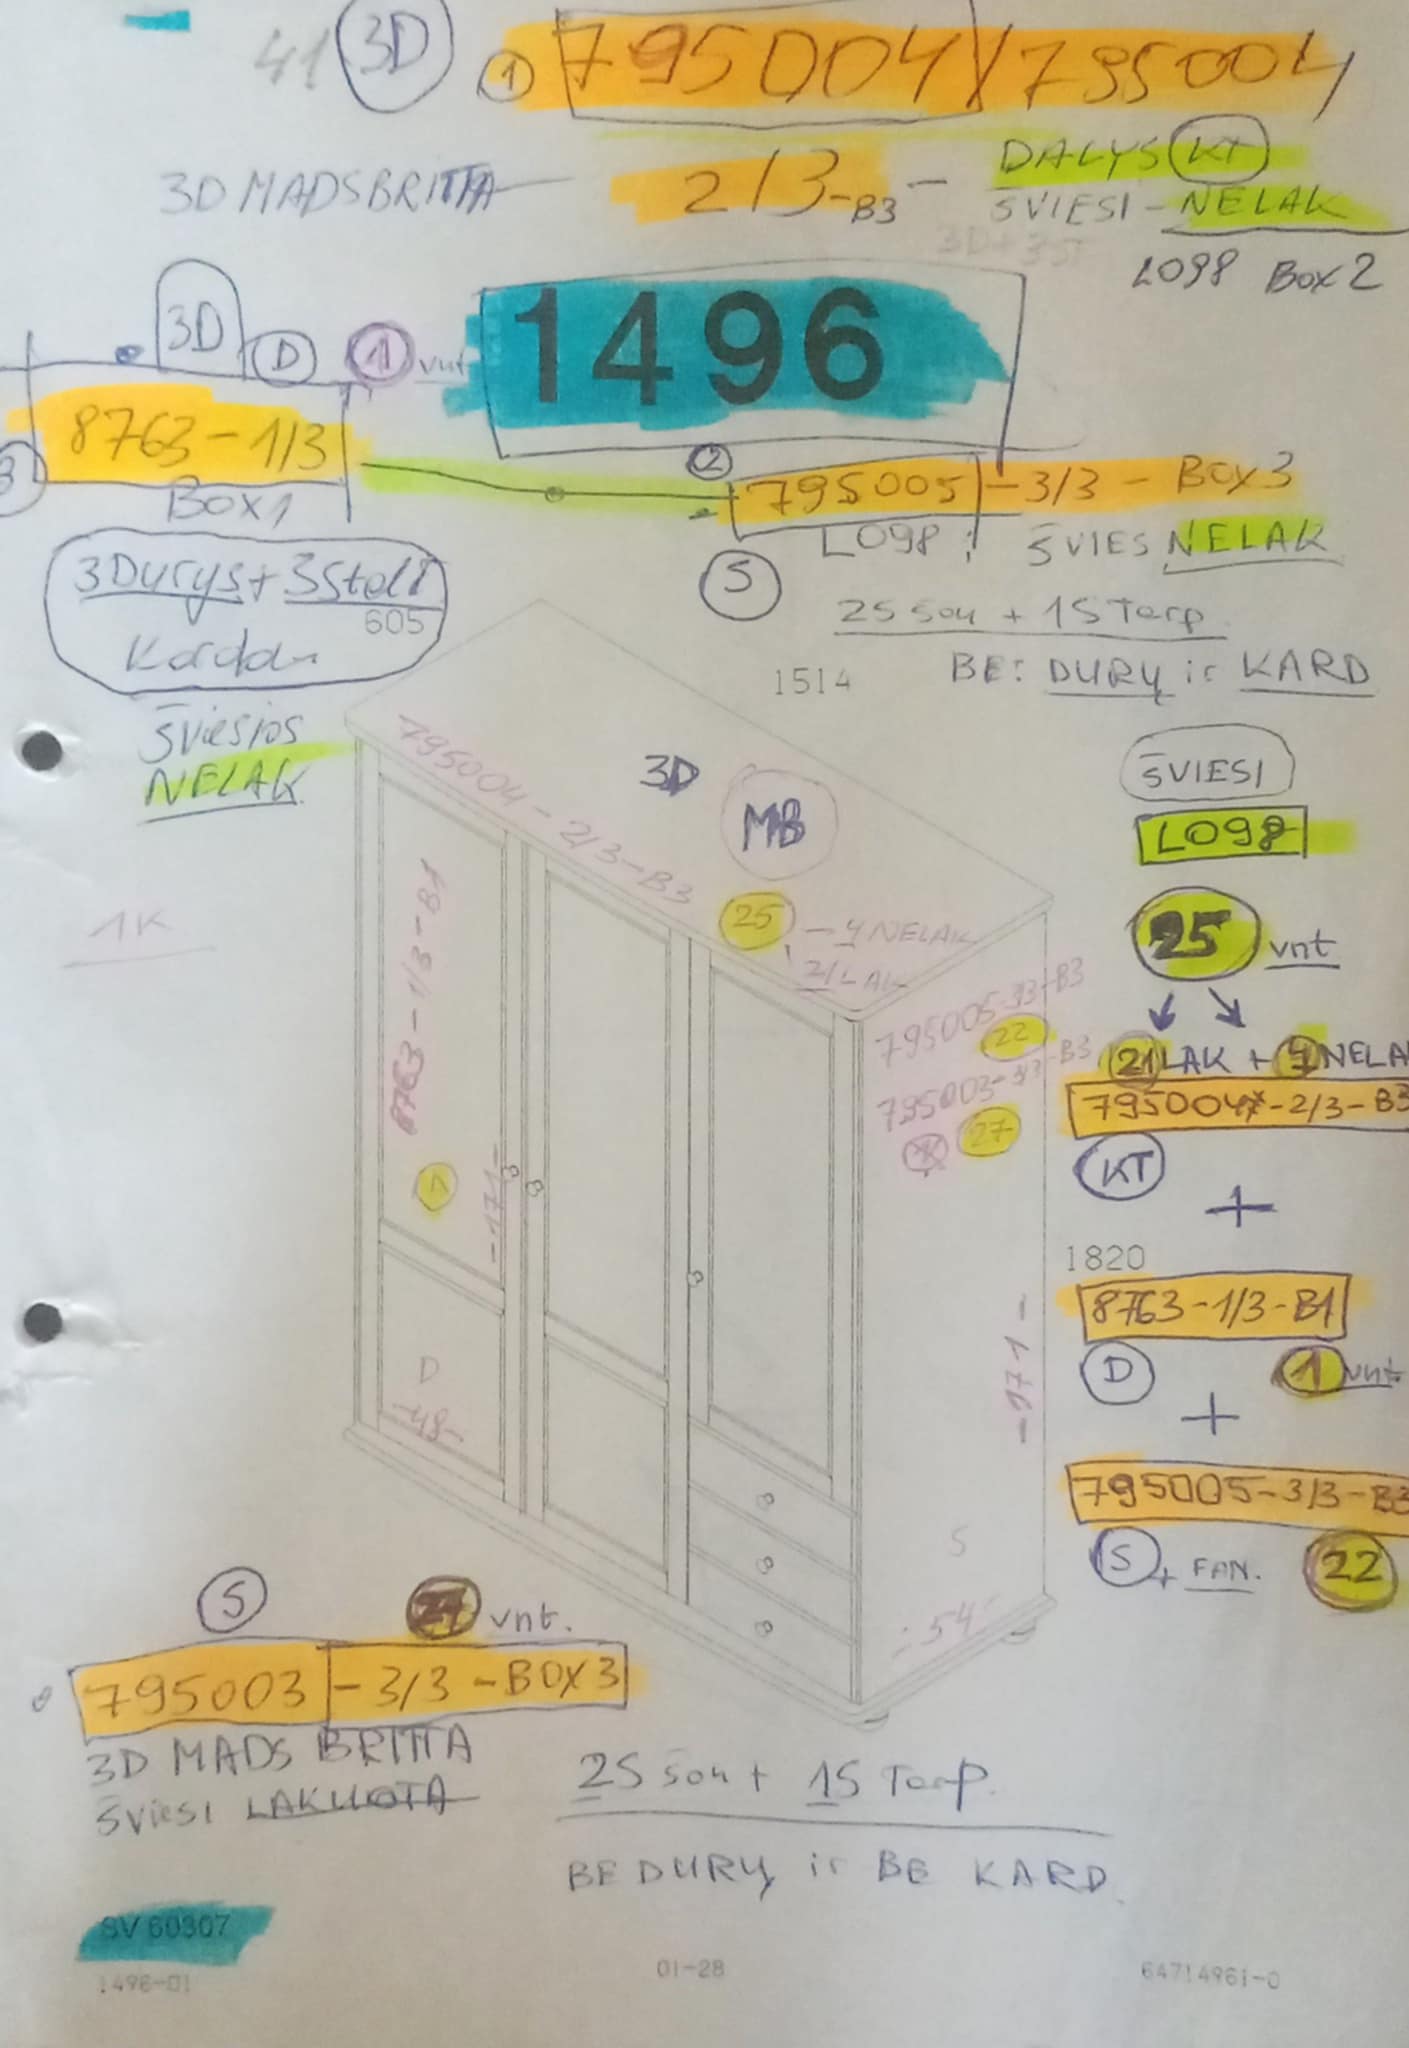 41 3D 1 795004 / 795004
3D MADSBRITTA — 2/3-B3 — DALYS KT
ŠVIESI - NELAK
3D+3ST
L098 Box 2
3D D 1 vnt 1496
8763 - 1/3
Box 1
2 795005 - 3/3 - BOX 3
L098 ŠVIES NELAK
3Durys + 3Stalč
605
S
2S Šon + 1S Tarp.
1514
BE: DURŲ ir KARD
Šviesios
NELAK
795004 - 2/3 - B3
3D MB
ŠVIESI
L098
25 - 4 NELAK
21 LAK
25 vnt
1K
8763 - 1/3 - B1
795005-3/3-B3
22
795003-3/3-B3
27
21 LAK + 4 NELA
795004-2/3-B3
KT
+
-171-
1820
8763-1/3-B1
D 1 vnt.
+
-171-
D
-48-
795005-3/3-B3
S + FAN. 22
S
-54-
S 27 vnt.
795003 - 3/3 - BOX 3
3D MADS BRITTA
Šviesi LAKUOTA
2S Šon + 1S Tarp.
BE DURŲ ir BE KARD.
SV 60307
1496-01
01-28
64714961-0